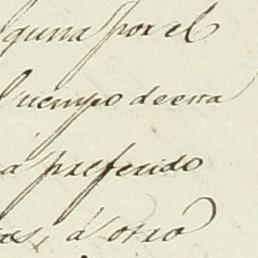 guna por el
tiempo de esta
a preferido
as, a otro